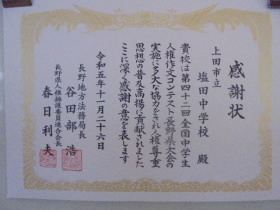 感謝状
上田市立
塩田中学校 殿
貴校は第四十二回全国中学生
人権作文コンテスト長野県大会の
実施に多大な協力をされ人権尊重
思想の普及高揚に貢献されました
ここに深く感謝の意を表します
令和五年十一月二十六日
長野地方法務局長
谷田部 浩
長野県人権擁護委員連合会長
春日利夫